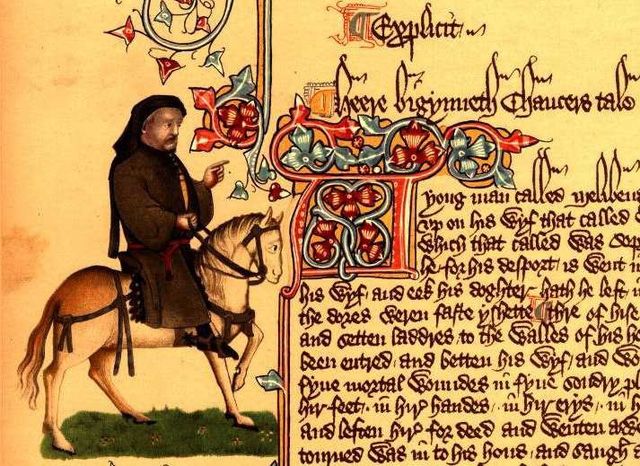 Explicit
Heere bigynneth Chaucers tale
A yong man called Melibeus
vp on his wyf that called
which that called was Sop
he for his desport is went in
his wyf and eek his doghter hath he left in
the dores weren faste yshette Thre of hise
and setten laddres to the walles of his h
been entred and betten his wyf and wo
fyue mortal woundes in fyue sondry p
hir feet in hir handes in hir erys in h
and leften hir for deed and wenten awey
tourned was in to his hous and saugh